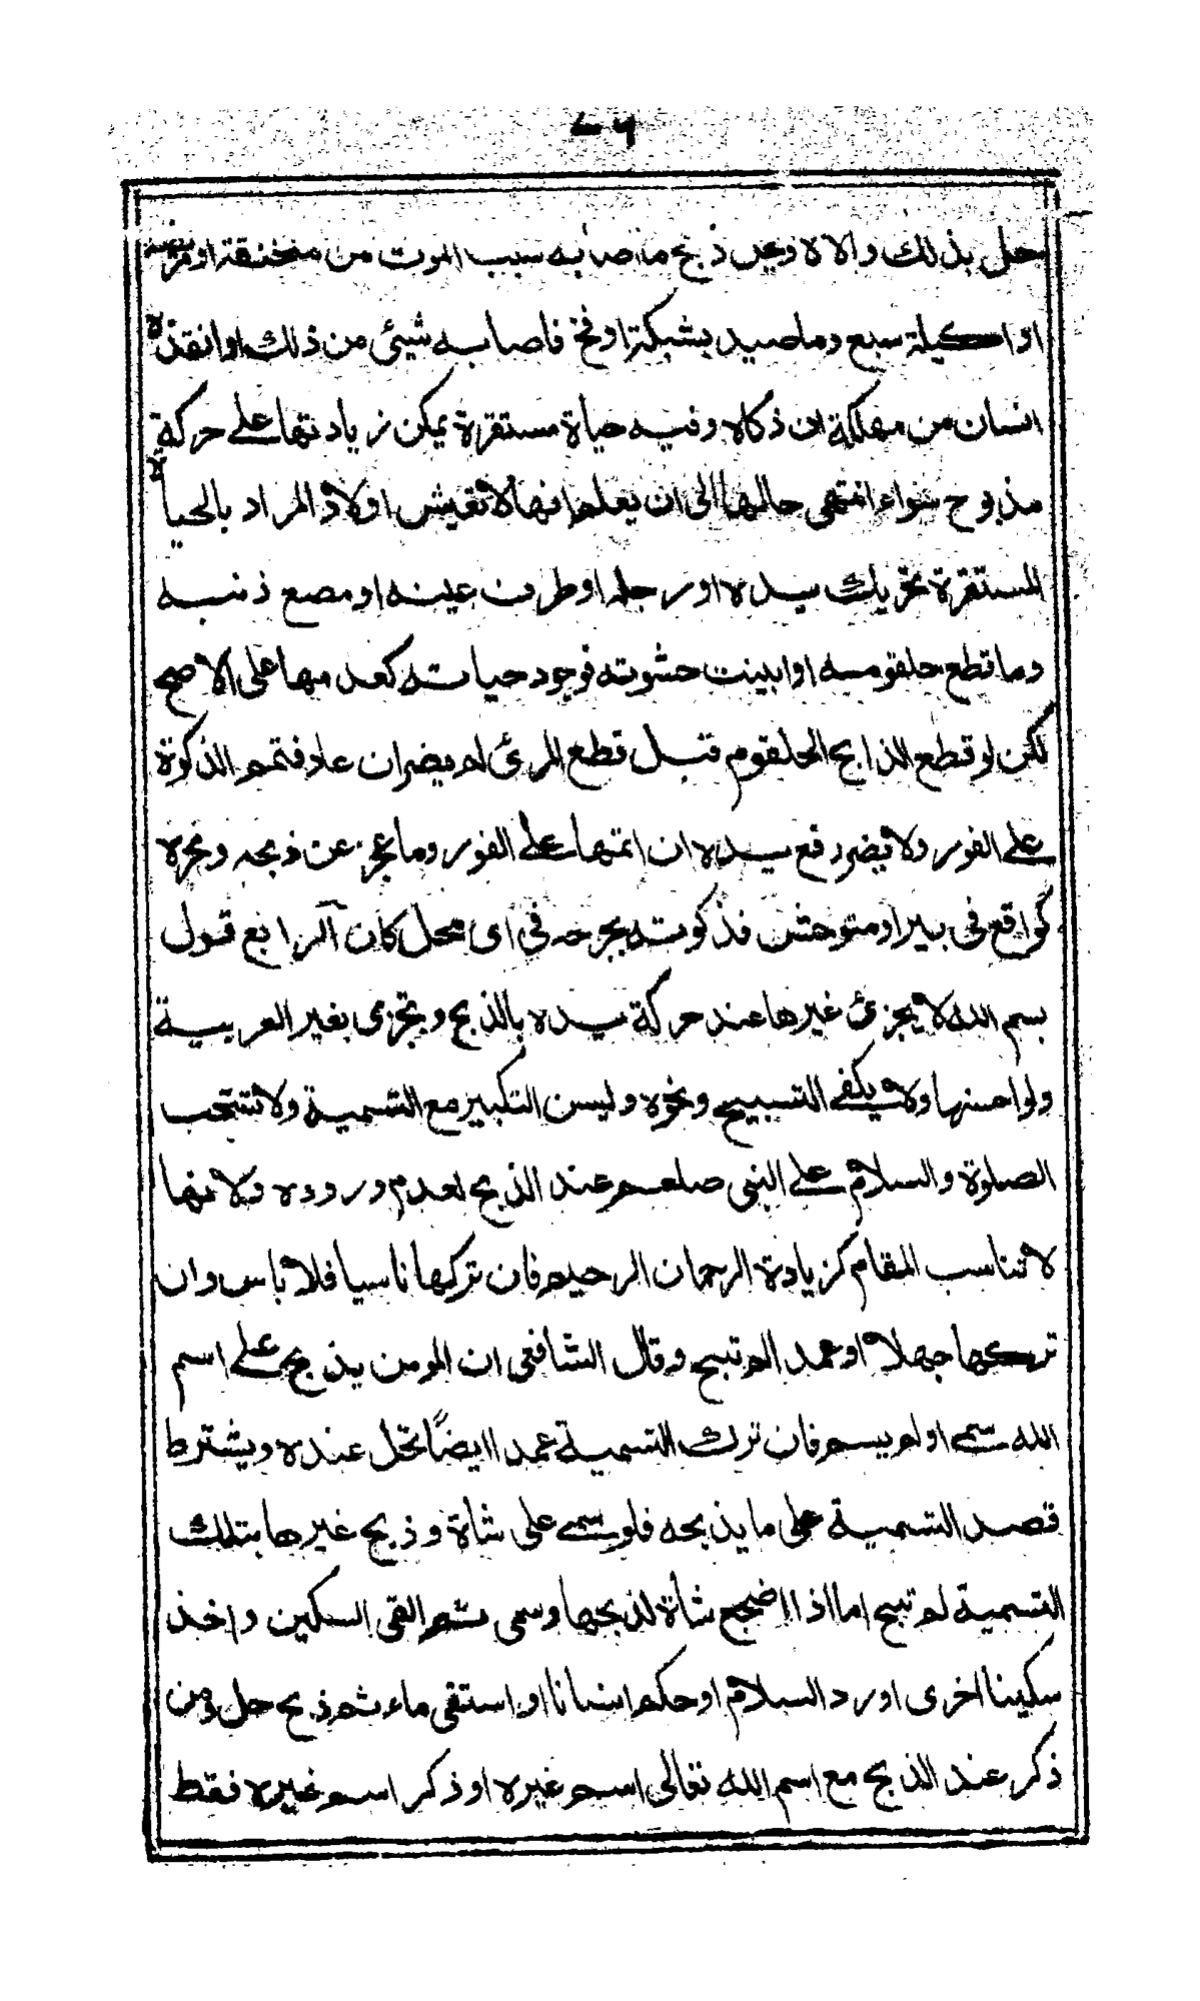 ٧٦
حل بذلك والا لا وعن ذبح ما صابه سبب الموت من منخنقة او
او اكيلة سبع وما صيد بشبكة او فخ فاصابه شيئ من ذلك او انقذه
انسان من مهلكة ان ذكاه وفيه حياة مستقرة يمكن زيادتها على حركة
مذبوح سواء انتهى حالها الى ان يعلم انها لا تعيش اولا والمراد بالحياة
المستقرة تحريك يده او رجله او طرف عينه او مصع ذنبه
وما قطع حلقومه او ابينت حشوته فوجود حياته كعدمها على الاصح
لكن لو قطع الذابح الحلقوم قبل قطع المرئ لم يضر ان عاد فتمم الذكوة
على الفور ولا يضر رفع يده ان اتمها على الفور وما عجز عن ذبحه ونحره
كواقع في بير او متوحش فذكوته بجرحه في اى محل كان آلرابع قول
بسم الله لا يجزئ غيرها عند حركة يده بالذبح وتجزى بغير العربية
ولو احسنها ولا يكفى التسبيح ونحوه وليسن التكبير مع التسمية ولا تستحب
الصلوة والسلام على النبى صلعم عند الذبح لعدم وروده ولانها
لا تناسب المقام كزيادة الرحمان الرحيم فان تركها ناسيا فلا باس وان
تركها جهلا او عمدا لم تبح وقال الشافعى ان المومن يذبح على اسم
الله سمى او لم يسم فان ترك التسمية عمدا ايضًا تحل عنده ويشترط
قصد التسمية على ما يذبحه فلو سمى على شاة وذبح غيرها بتلك
التسمية لم تبح اما اذا اضجع شاة لذبحها وسمى ثم القى السكين واخذ
سكينا اخرى او رد السلام او حكم انسانا او استقى ماء ثم ذبح حل ومن
ذكر عند الذبح مع اسم الله تعالى اسم غيره او ذكر اسم غيره فقط